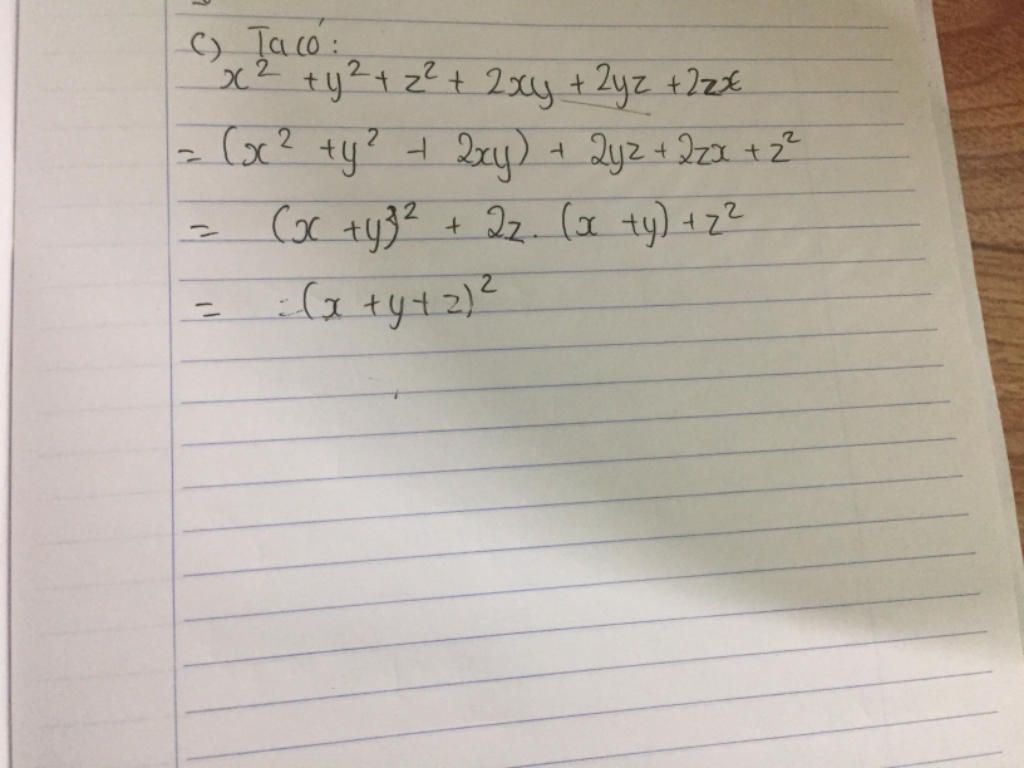 c) Ta có:
x² + y² + z² + 2xy + 2yz + 2zx
= (x² + y² + 2xy) + 2yz + 2zx + z²
= (x + y)² + 2z. (x + y) + z²
= = (x + y + z)²